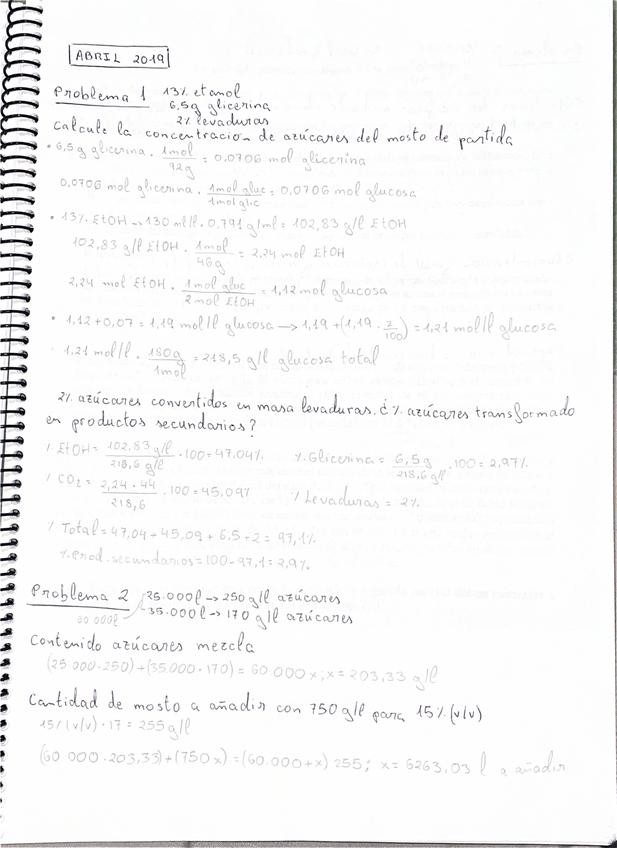 ABRIL 2019
Problema 1 13% etanol
6,5g glicerina
2% levaduras
Calcule la concentracion de azúcares del mosto de partida
• 6,5g glicerina · 1mol/92g = 0,0706 mol glicerina
0,0706 mol glicerina · 1mol gluc/1mol glic = 0,0706 mol glucosa
• 13% EtOH → 130 ml/l · 0,791 g/ml = 102,83 g/l EtOH
102,83 g/l EtOH · 1mol/46g = 2,24 mol EtOH
2,24 mol EtOH · 1mol gluc/2mol EtOH = 1,12 mol glucosa
• 1,12+0,07 = 1,19 mol/l glucosa → 1,19+(1,19 · 2/100) = 1,21 mol/l glucosa
1,21 mol/l · 180g/1mol = 218,5 g/l glucosa total
2% azúcares convertidos en masa levaduras. ¿% azúcares transformado
en productos secundarios?
% EtOH = 102,83 g/l/218,6 g/l · 100 = 47,04% % Glicerina = 6,5g/218,6 g/l · 100 = 2,97%
% CO2 = 2,24 · 44/218,6 · 100 = 45,09% % Levaduras = 2%
% Total = 47,04 + 45,09 + 6,5 + 2 = 97,1%
% Prod. secundarios = 100 - 97,1 = 2,9%
Problema 2 25.000l → 250 g/l azúcares
60 000l 35.000l → 170 g/l azúcares
Contenido azúcares mezcla
(25 000 · 250) + (35.000 · 170) = 60 000 x ; x = 203,33 g/l
Cantidad de mosto a añadir con 750 g/l para 15% (v/v)
15% (v/v) · 17 = 255 g/l
(60 000 · 203,33) + (750 x) = (60.000 + x) 255 ; x = 6263,03 l a añadir